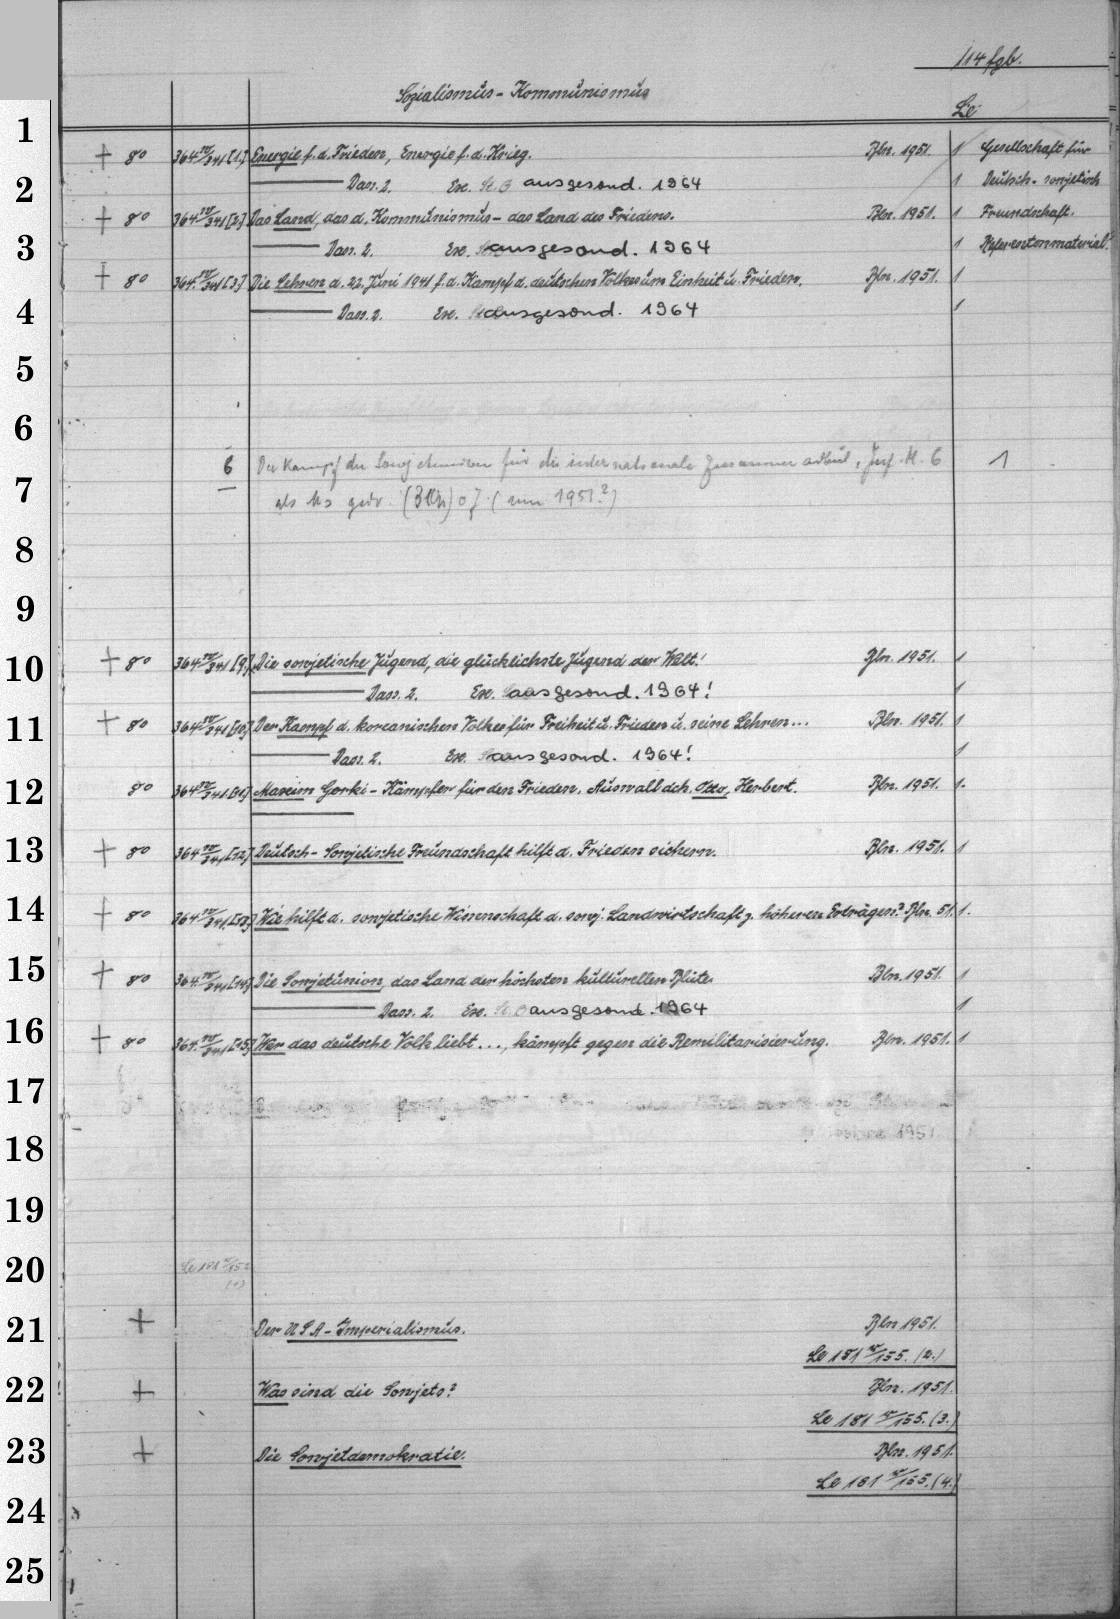 114 fgb.
Sozialismus - Kommunismus
Le
1
+ 8° 364 IV/341 [1.] Energie f. d. Frieden, Energie f. d. Krieg. Bln. 1951. 1 Gesellschaft für
2
Dass. 2. Ex. ausgesond. 1964 1 Deutsch-sowjetisch
+ 8° 364 IV/341 [2.] Das Land, das d. Kommunismus - das Land des Friedens. Bln. 1951. 1 Freundschaft.
3
Dass. 2. Ex. ausgesond. 1964 1 Referentenmaterial.
+ 8° 364 IV/341 [3.] Die Lehren d. 22. Juni 1941 f. d. Kampf d. deutschen Volkes um Einheit u. Frieden. Bln. 1951. 1
4
Dass. 2. Ex. ausgesond. 1964 1
5
6
6 Der Kampf der für die internationale 6 1
7
als Ms gedr. (um 1951?)
8
9
10
+ 8° 364 IV/341 [9.] Die sowjetische Jugend, die glücklichste Jugend der Welt! Bln. 1951. 1
Dass. 2. Ex. ausgesond. 1964! 1
11
+ 8° 364 IV/341 [10] Der Kampf d. koreanischen Volkes für Freiheit u. Frieden u. seine Lehren... Bln. 1951. 1
Dass. 2. Ex. ausgesond. 1964! 1
12
8° 364 IV/341 [11] Maxim Gorki - Kämpfer für den Frieden. Auswahl dch. Otto, Herbert. Bln. 1951. 1.
13
+ 8° 364 IV/341 [12] Deutsch-Sowjetische Freundschaft hilft d. Frieden sichern. Bln. 1951. 1
14
+ 8° 364 IV/341 [13] Wie hilft d. sowjetische Wissenschaft d. sowj. Landwirtschaft z. höheren Erträgen? Bln. 51. 1.
15
+ 8° 364 IV/341 [14] Die Sowjetunion, das Land der höchsten kulturellen Blüte. Bln. 1951. 1
Dass. 2. Ex. ausgesond. 1964 1
16
+ 8° 364 IV/341 [15] Wer das deutsche Volk liebt ..., kämpft gegen die Remilitarisierung. Bln. 1951. 1
17
18
19
20
21
+ Der USA-Imperialismus. Bln 1951.
Le 181 IV/155. (2.)
22
+ Was sind die Sowjets? Bln. 1951.
Le 181 IV/155. (3.)
23
+ Die Sowjetdemokratie. Bln. 1951.
Le 181 IV/155. (4.)
24
25